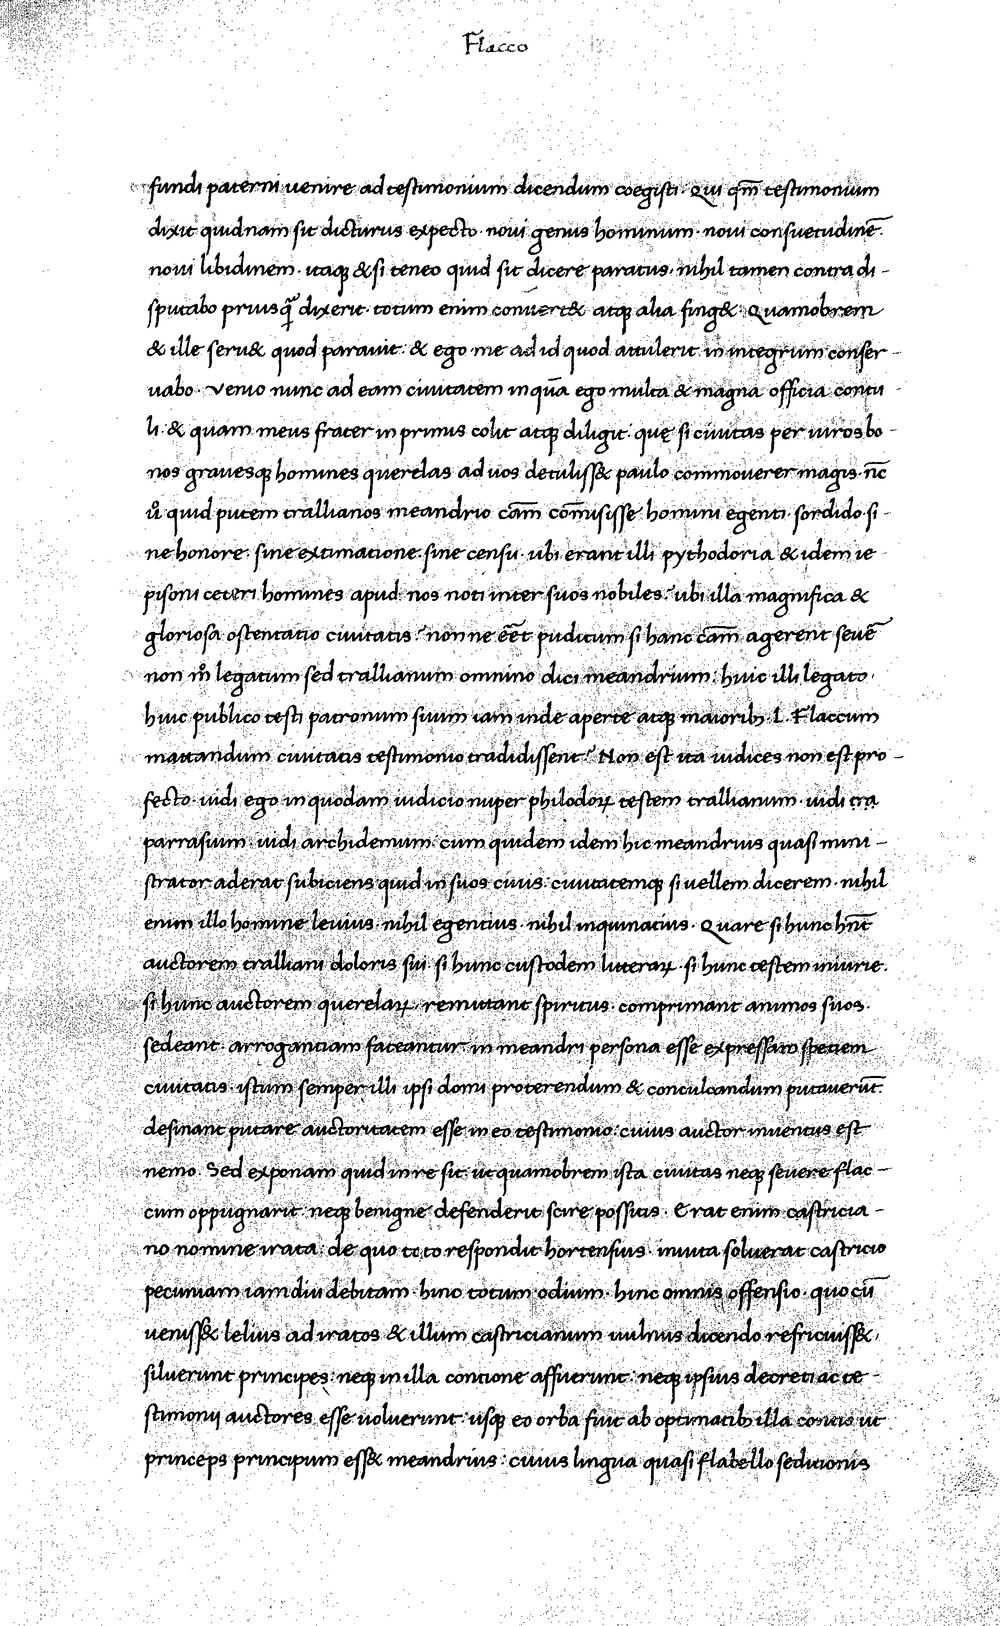 Flacco
fundi paterni uenire ad testimonium dicendum coegisti. Qui qm̅ testimonium
dixit quidnam sit dicturus expecto. noui genus hominum. noui consuetudinē.
noui libidinem. itaqꝫ & si teneo quid sit dicere paratus. nihil tamen contra di-
sputabo priusqꝫ̄ dixerit. totum enim conuert& atqꝫ alia fing&. Quamobrem
& ille seru& quod parauit. & ego me ad id quod attulerit in integrum conser-
uabo. Venio nunc ad eam ciuitatem in quā ego multa & magna officia contu
li. & quam meus frater in primis colit atqꝫ diligit. quę si ciuitas per uiros bo-
nos grauesqꝫ homines querelas ad uos detuliss& paulo commouerer magis. nc̅
uͦ quid putem trallianos meandrio cam̅ com̅isisse homini egenti. sordido. si-
ne honore. sine extimatione. sine censu. ubi erant illi pythodoria & idem ie
pisoni ceteri homines apud nos noti inter suos nobiles? ubi illa magnifica &
gloriosa ostentatio ciuitatis? non ne ee̅t puditum si hanc cam̅ agerent seuē
non mͦ legatum sed trallianum omnino dici meandrium. huic illi legato.
huic publico testi patronum suum iam inde aperte atqꝫ maioribꝫ. L. Flaccum
mattandum ciuitatis testimonio tradidissent? Non est ita iudices non est pro-
fecto. uidi ego in quodam iudicio nuper philodoꝝ testem trallianum. uidi tra
parrasium. uidi archidemum. cum quidem idem hic meandrius quasi mini-
strator aderat subiciens quid in suos ciuis. ciuitatemqꝫ si uellem dicerem. nihil
enim illo homine leuius. nihil egentius. nihil inquinatius. Quare si hunc hn̅t
auctorem tralliani doloris sui. si hunc custodem litteraꝝ. si hunc testem iniurie.
si hunc auctorem querelaꝝ. remittant spiritus. comprimant animos suos.
sedeant. arrogantiam fateantur. in meandri persona esse expressam speciem
ciuitatis. istum semper illi ipsi domi proterendum & conculcandum putauerūt.
desinant putare auctoritatem esse in eo testimonio. cuius auctor inuentus est
nemo. Sed exponam quid in re sit. ut quamobrem ista ciuitas neqꝫ seuere flac-
cum oppugnarit. neqꝫ benigne defenderit scire possitis. Erat enim castricia-
no nomine irata. de quo toto respondit hortensius. inuita soluerat castricio
pecuniam iam diu debitam. hinc totum odium. hinc omnis offensio. quo cū
ueniss& lelius ad iratos & illum castricianum uulnus dicendo refricuiss&.
siluerunt principes. neqꝫ in illa contione affuerunt. neqꝫ ipsius decreti ac te-
stimonii auctores esse uoluerunt. usqꝫ eo orba fuit ab optimatibꝫ illa contio ut
princeps principum ess& meandrius. cuius lingua quasi flabello seditionis